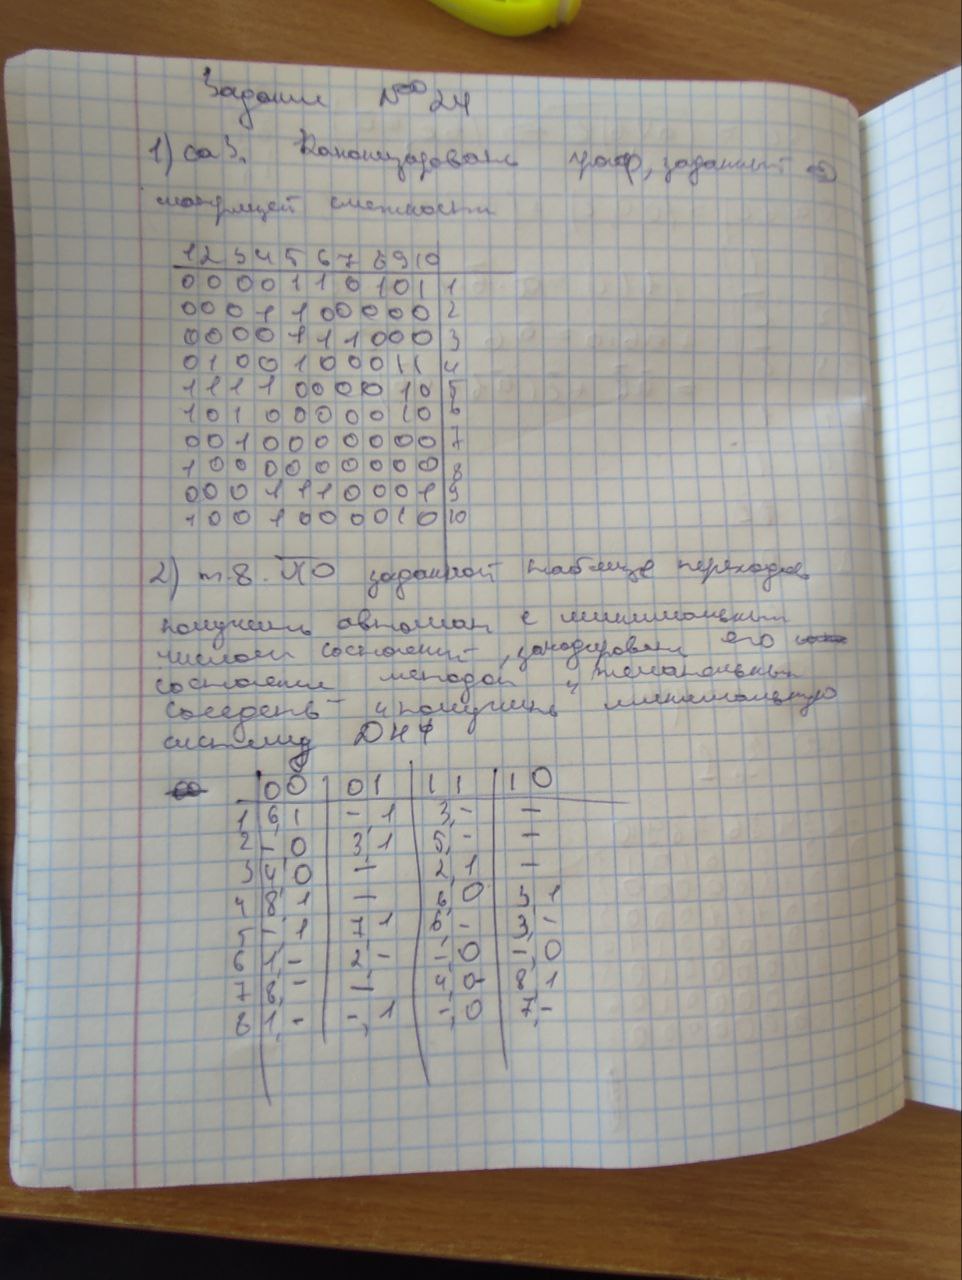 Задание № 24
1) са 3. Канонизировать граф, заданный
матрицей смежности
1 2 3 4 5 6 7 8 9 10
0 0 0 0 1 1 0 1 0 1 1
0 0 0 1 1 0 0 0 0 0 2
0 0 0 0 1 1 1 0 0 0 3
0 1 0 0 1 0 0 0 1 1 4
1 1 1 1 0 0 0 0 1 0 5
1 0 1 0 0 0 0 0 1 0 6
0 0 1 0 0 0 0 0 0 0 7
1 0 0 0 0 0 0 0 0 0 8
0 0 0 1 1 1 0 0 0 1 9
1 0 0 1 0 0 0 0 1 0 10
2) т.8. ПО заданной таблице переходов
получить автомат с минимальным
числом состояний, закодировать его
состояния методом желательных
соседств и получить минимальную
систему ДНФ
00 01 11 10
1 6,1 -,1 3,- -
2 -,0 3,1 5,- -
3 4,0 - 2,1 -
4 8,1 - 6,0 3,1
5 -,1 7,1 6,- 3,-
6 1,- 2,- -,0 -,0
7 8,- - 4,0 8,1
8 1,- -,1 -,0 7,-